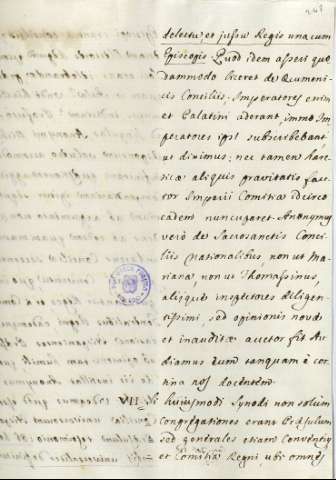 delectu, et jussu Regis una cum
Episcopis. Quod idem asseri quo
dammodo liceret de Œcumeni
cis Conciliis. Imperatores enim
et Palatini aderant, immo Im
peratores ipsi subscribebant,
ut diximus: nec tamen hære
ticæ aliquis pravitatis fau
tor Imperii Comitia idcirco
eadem nuncuparet. Anonymus
verò de Sacrosanctis Conci
liis Nationalibus, non ut Ma
riana, non ut Thomassinus,
aliique inspectores diligen
tissimi, sed opinionis novæ
et inauditæ auctor sit. Au
diamus eum tanquam è cor
tina nos docentem.
VII. In huiusmodi Synodis non solum
congregationes erant Præsulum
sed generales etiam Conventus
et Comitia Regni, ubi omnes